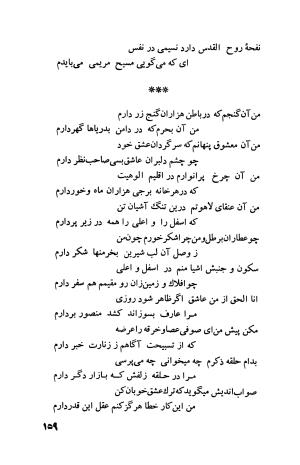 نفحهٔ روح القدس دارد نسیمی در نفس
ای که میگویی مسیح مریمی میبایدم
***
من آن گنجم که در باطن هزاران گنج زر دارم
من آن بحرم که در دامن بدریاها گهر دارم
من آن معشوق پنهانم که سرگردان عشق خود
چو چشم دلبران عاشق بسی صاحب نظر دارم
من آن چرخ پر انوارم در اقلیم الوهیت
که در هر خانه برجی هزاران ماه و خور دارم
من آن عنقای لاهوتم درین تنگ آشیان تن
که اسفل را و اعلی را همه در زیر پر دارم
چو عطاران بر طل و من چرا شکر خورم چون من
ز وصل آن لب شیرین بخرمنها شکر دارم
سکون و جنبش اشیا منم در اسفل و اعلی
چو افلاک و زمین زان رو مقیمم هم سفر دارم
انا الحق از من عاشق اگر ظاهر شود روزی
مرا عارف بسوزاند کشد منصور بر دارم
مکن پیش من ای صوفی عصا و خرقه را عرضه
که از تسبیحت آگاهم ز زنارت خبر دارم
بدام حلقه ذکرم چه میخوانی چه میپرسی
مرا در حلقه زلفش که بازار دگر دارم
صواب اندیش میگوید که ترک عشق خوبان کن
من این کار خطا هرگز کنم عقل این قدر دارم
۱۵۹